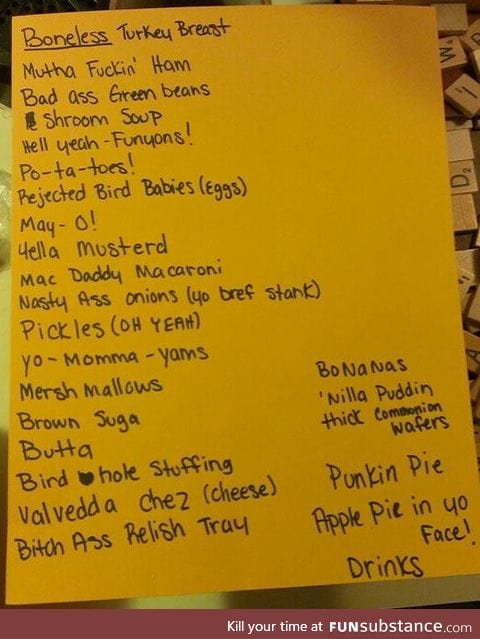 Boneless Turkey Breast
Mutha Fuckin' Ham
Bad ass Green beans
Shroom Soup
Hell yeah - Funyons!
Po-ta-toes!
Rejected Bird Babies (Eggs)
May-O!
Yella Musterd
Mac Daddy Macaroni
Nasty Ass onions (yo bref stank)
Pickles (OH YEAH)
yo-Momma-yams
Mersh Mallows
Brown Suga
Butta
Bird hole Stuffing
Valvedda Chez (cheese)
Bitch Ass Relish Tray
BoNaNas
'Nilla Puddin
thick Communion
Wafers
Punkin Pie
Apple Pie in yo
Face!
Drinks
W
D2
Kill your time at FUNsubstance.com